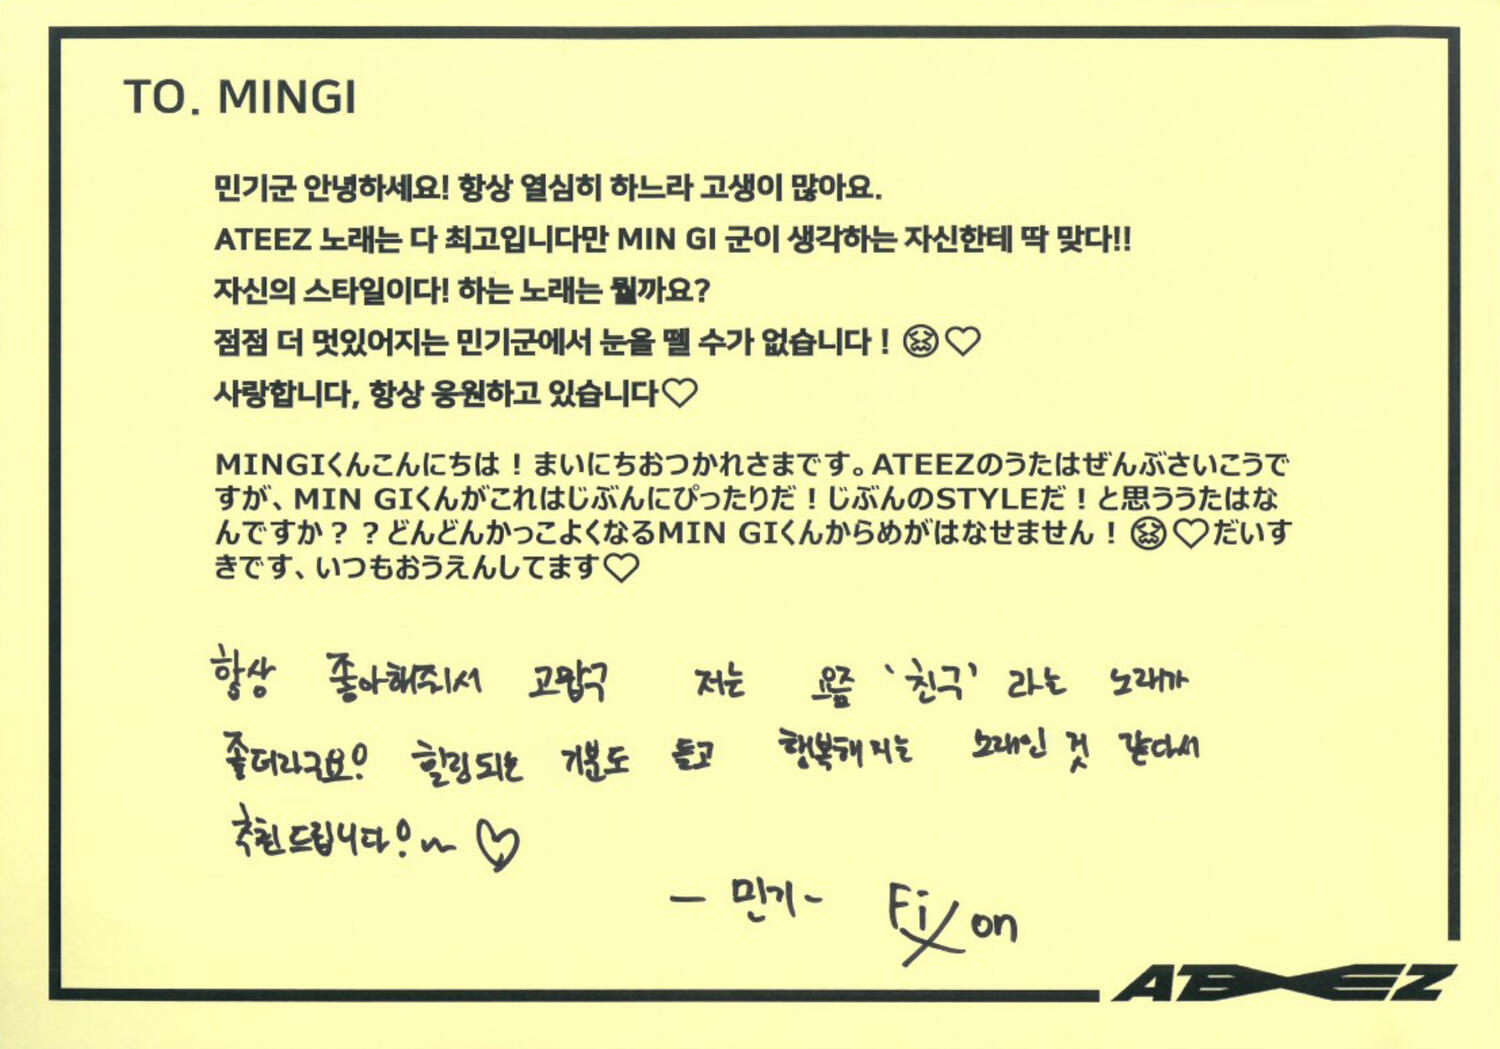 TO. MINGI
민기군 안녕하세요! 항상 열심히 하느라 고생이 많아요.
ATEEZ 노래는 다 최고입니다만 MIN GI 군이 생각하는 자신한테 딱 맞다!!
자신의 스타일이다! 하는 노래는 뭘까요?
점점 더 멋있어지는 민기군에서 눈을 뗄 수가 없습니다! 😖♡
사랑합니다, 항상 응원하고 있습니다♡
MINGIくんこんにちは！まいにちおつかれさまです。ATEEZのうたはぜんぶさいこうで
すが、MIN GIくんがこれはじぶんにぴったりだ！じぶんのSTYLEだ！と思ううたはな
んですか？？どんどんかっこよくなるMIN GIくんからめがはなせません！😖♡だいす
きです、いつもおうえんしてます♡
항상 좋아해줘서 고맙구 저는 요즘 '친구' 라는 노래가
좋더라구요! 힐링되는 기분도 들고 행복해지는 노래인 것 같아서
추천드립니다!~ ♡
- 민기 - Fix on
ATEEZ